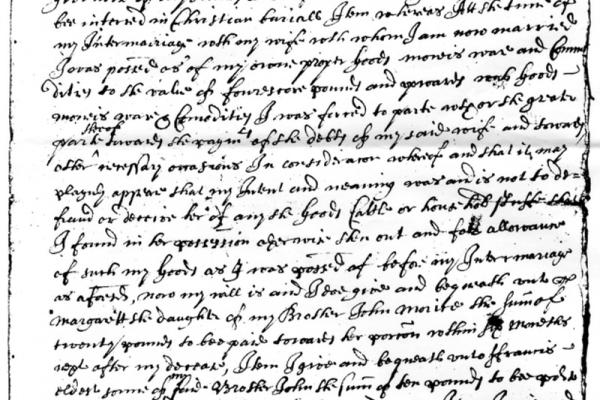 bee interred in Christian buriall Item whereas Att the time of
my Intermariage with my wife with whom I am now married
I was possed as of my owne proper goods moneis ware and Commo
dities to the value of fourescore pounds and upwards which goods
moneis ware & Comodities I was forced to parte with or the greater
parte thereof towards the paym't of the debts of my said wife and towards
other necessary occasions In consideracon whereof and that it may
playnly appeare that my Intent and meaning was and is not to de-
fraud or deceive her of any the goods Cattle or household stuffe that
I found in her possession otherwise then out and for allowance
of such my goods as I was possed of before my Intermariage
as aforesd, now my will is and I doe give and bequeath unto
Margarett the daughter of my Brother John the sum of
twenty pounds to bee paid towards her porcon within six moneths
next after my decease, Item I give and bequeath unto ffrancis
eldest sonne of my said Brother John the summ of ten pounds to bee paid